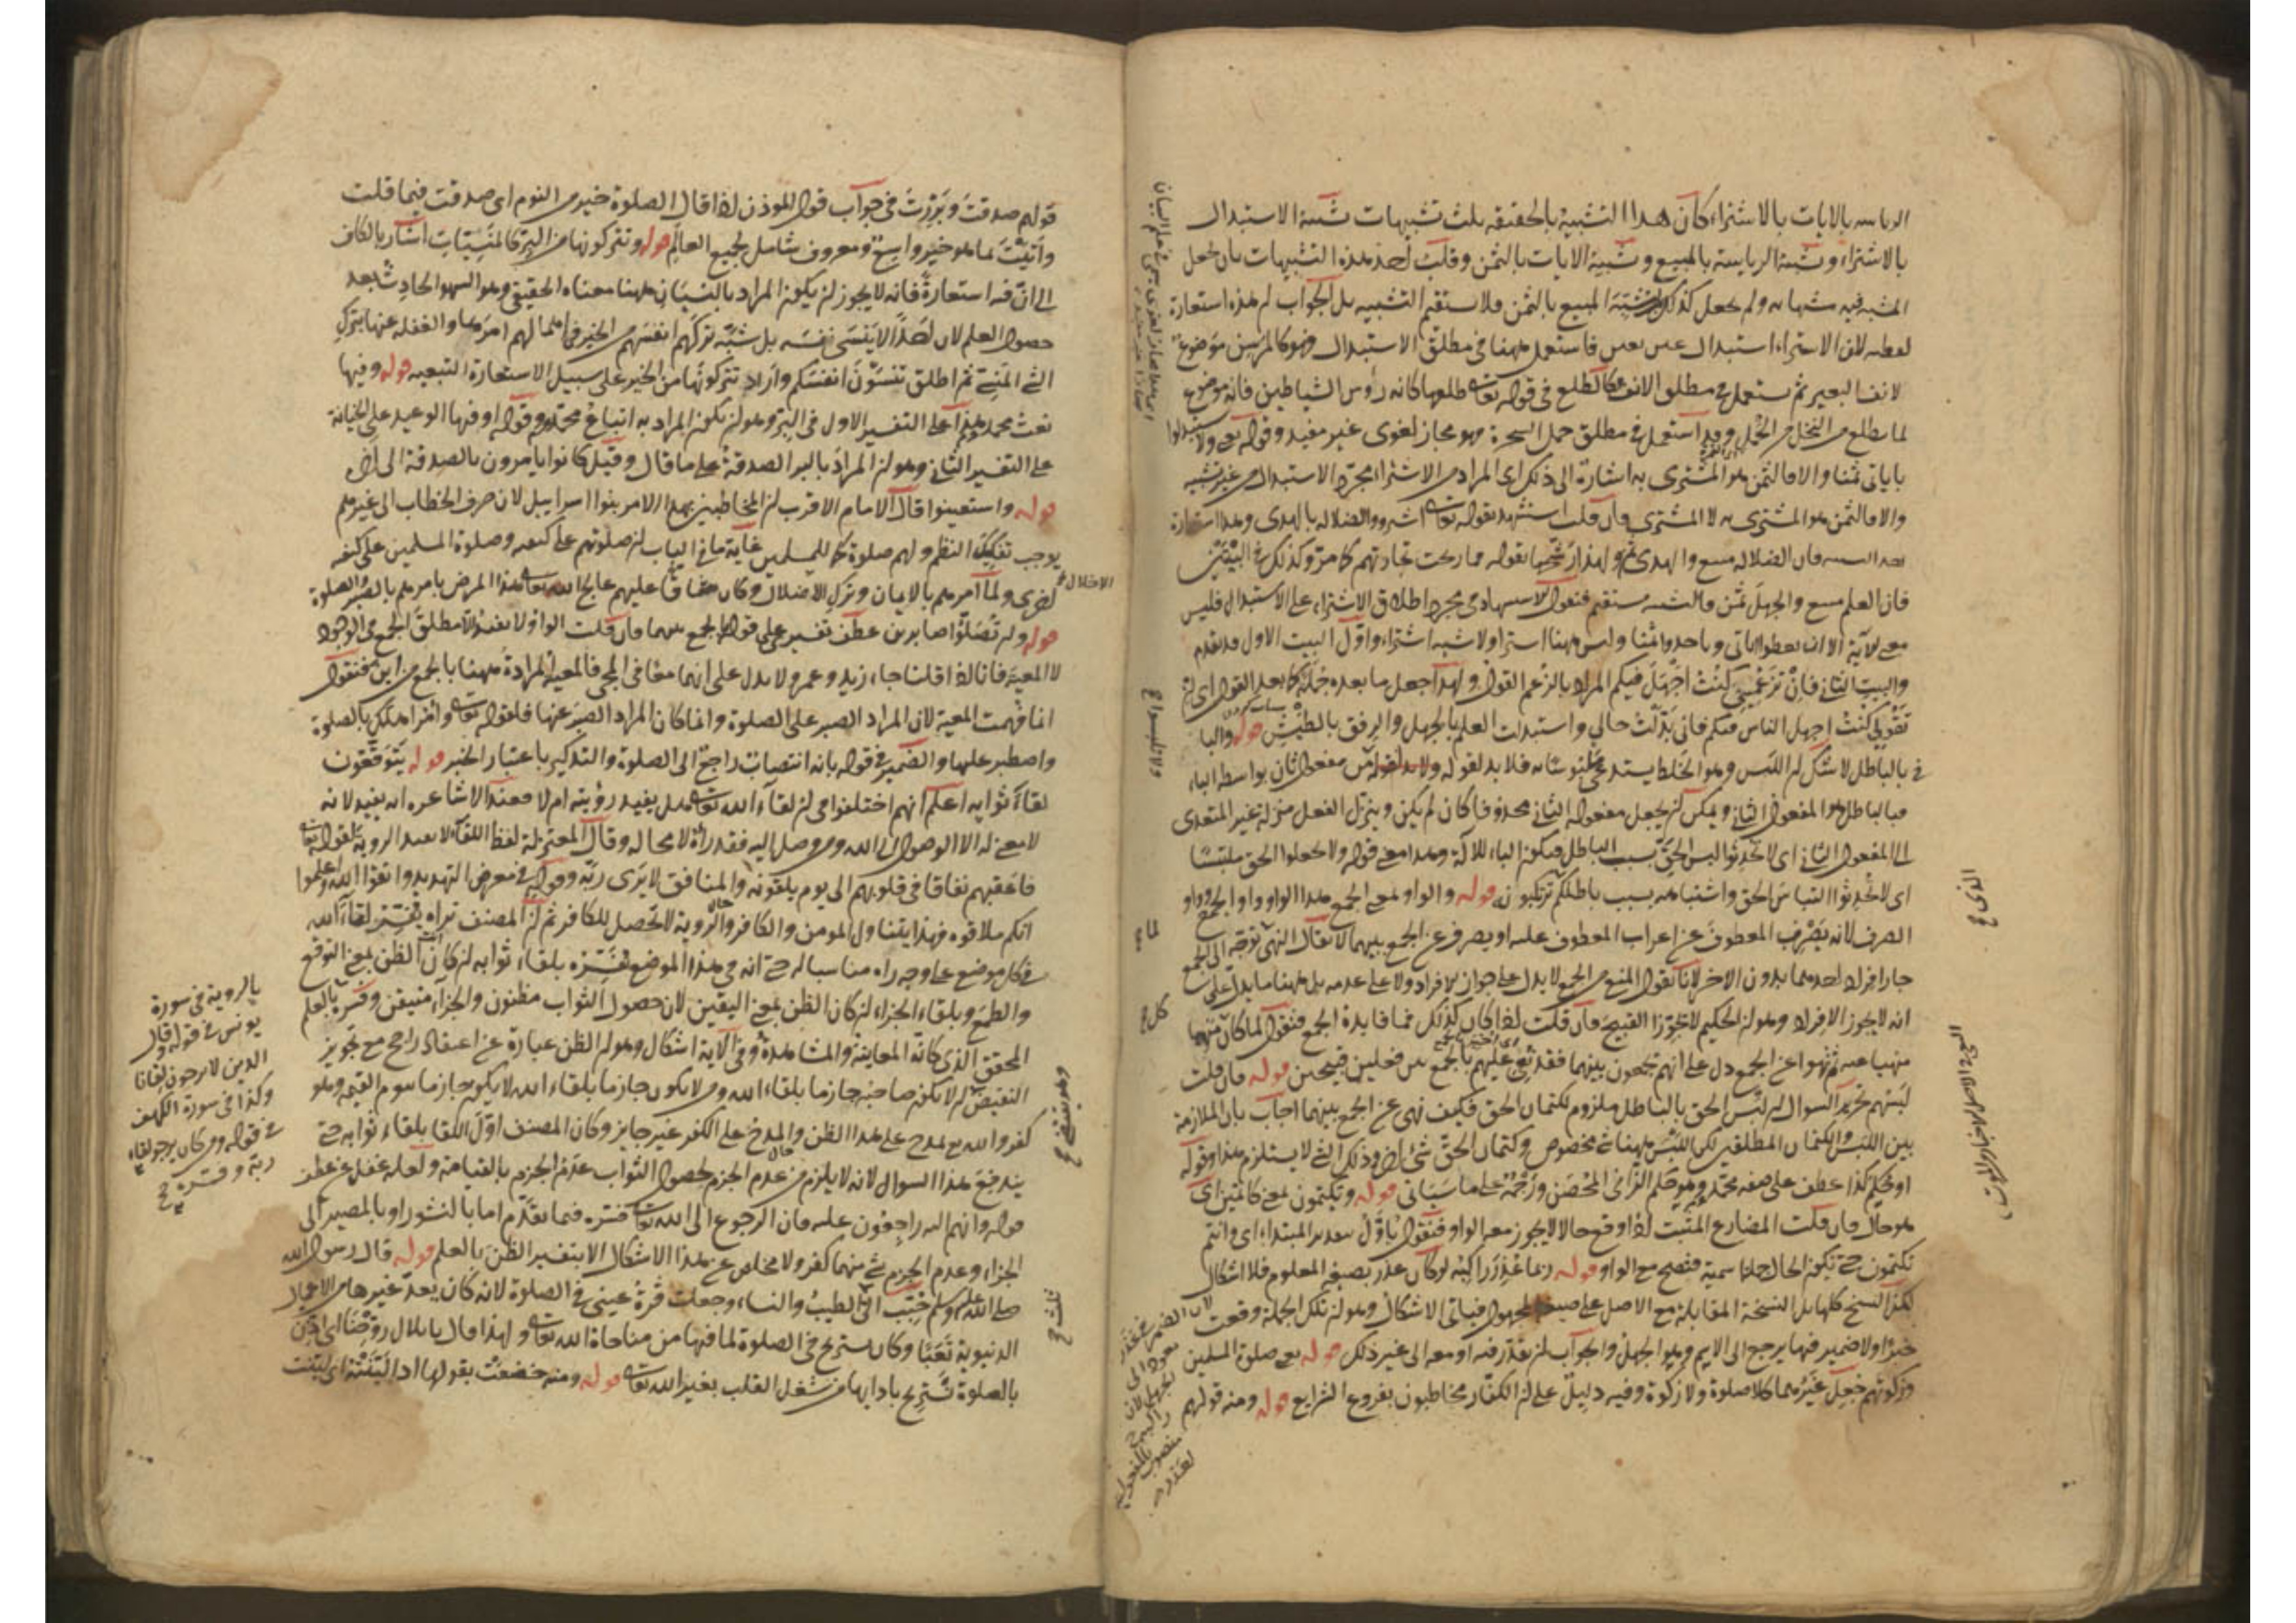 الرياسه بالايات بالاشتراء كان هذا التشبيه بالحقيقه ثلث تشبيهات تشبيه الاستبدال
بالاشتراء وتشبيه الرياسة بالمبيع وتشبيه الايات بالثمن وقلب احد هذه التشبيهات بان جعل
المشبه فيه مشبها به ولم يجعل كذلك المبيع بالثمن فلا يستقيم التشبيه بل الجواب ان هذه استعارة
لفظيه لان الاشتراء استبدال فاستعمل ههنا في مطلق الاستبدال وهو كالمرسن موضوع
لانف البعير ثم يستعمل في مطلق الانف وكالطلع في قوله تعالى طلعها كانه رؤس الشياطين فانه موضوع
لما يطلع من النخل وقد استعمل في مطلق حمل الشجرة فهو مجاز لغوى غير مفيد وقوله يعنى ولا تستبدلوا
باياتى ثمنا والا فالثمن هو المشترى به اشارة الى ذلك اى المراد من الاشتراء مجرد الاستبدال من غير تشبيه
والا فالثمن هو المشترى به لا المشترى فان قلت استشهد بقوله تعالى اشتروا الضلاله بالهدى وهذا استعارة
فان الضلاله مبيع والهدى ثمن ولهذا رشحها بقوله فما ربحت تجارتهم كما مر وكذلك في البيتين
فان العلم مبيع والجهل ثمن فالتشبيه مستقيم فنقول الاستشهاد في مجرد اطلاق الاشتراء على الاستبدال فليس
معنى الآية الا ان تعطوا اياتى وتاخذوا ثمنا وليس ههنا اشتراء ولا شبه اشتراء واول البيت الاول قد تقدم
والبيت الثاني فان تزعمينى كنت اجهل فيكم المراد بالزعم القول ولهذا جعل ما بعده جملة كما بعد القول اى ان
تقولى كنت اجهل الناس فيكم فانى بدلت حالى واستبدلت العلم بالجهل والرفق بالطيش قوله والباء
في بالباطل لا شك ان اللبس وهو الخلط يستدعى فلا بد لقوله ولا تلبسوا من مفعول ثان بواسطه الباء
فبالباطل هو المفعول الثاني ويمكن ان يجعل مفعوله الثاني محذوفا كان لم يكن وينزل الفعل منزلة غير المتعدى
الى المفعول الثاني اى لا تحدثوا لبس الحق بسبب الباطل فيكون الباء للآلة وهذا معنى قوله ولا تجعلوا الحق ملتبسا
اى لا تحدثوا التباس الحق واشتباهه بسبب باطلكم الذى تكتبونه قوله والواو بمعنى الجمع هذا الواو واو الجمع وواو
الصرف لانه يصرف المعطوف عن اعراب المعطوف عليه او يصرف عن الجمع بينهما لا يقال النهى توجه الى الجمع
جاز افراد احدهما بدون الاخر لانا نقول المنع من الجمع لا يدل على جواز الافراد ولا على عدمه بل ههنا ما يدل على
انه لا يجوز الافراد وهو ان الحكيم لا يجوز القبيح فان قلت اذا كان كذلك فما فايدة الجمع فنقول لما كان منهما
منهيا عنه ثم نهوا عن الجمع دل على انهم يجمعون بينهما فقد نعى عليهم بالجمع بين فعلين قبيحين قوله فان قلت
لبسهم تحرير السوال ان لبس الحق بالباطل ملزوم لكتمان الحق فكيف نهى عن الجمع بينهما اجاب بان الملازمة
بين اللبس والكتمان المطلقين لكن اللبس ههنا شئ مخصوص وكتمان الحق شئ اخر وذلك الشئ لا يستلزم هذا وقوله
او حكم كذا عطف على صفه محمد وهو حكم الزانى المحصن ورجمه على ما سياتى قوله وتكتمون بمعنى كاتمين اى
هو حال فان قلت المضارع المثبت اذا وقع حالا لا يجوز معه الواو فنقول ياول بتقدير المبتداء اى وانتم
تكتمون حتى تكون الحال جملة اسمية فتصح مع الواو قوله ربما عذر راكبه لو كان عذر بصيغه المعلوم فلا اشكال
لكن النسخ كلها بل النسخة المقابلة مع الاصل على صيغه المجهول فياتى الاشكال وهو ان تلك الجملة وقعت
خبرا ولا ضمير فيها يرجع الى الاسم وهو الجهل والجواب ان نقدر فيه او معه الى غير ذلك قوله يعنى صلوة المسلمين
وزكوتهم جعل غيرهما كلا صلوة ولا زكوة وفيه دليل على ان الكفار مخاطبون بفروع الشرايع قوله ومنه قولهم
قولهم صدقت وبررت في جواب قول المؤذن اذا قال الصلوة خير من النوم اى صدقت فيما قلت
واتيت بما هو خير واسع ومعروف شامل لجميع العالم قوله وتتركونها من البر كالمنسيات اشار بالكاف
الى ان فيه استعارة فانه لا يجوز ان يكون المراد بالنسيان ههنا معناه الحقيقى وهو السهو الحادث بعد
حصول العلم لان احدا لا ينسى نفسه بل شبه تركهم انفسهم من الخير في اهمالهم امرها والغفله عنها بترك
الشئ المنسى ثم اطلق تنسون انفسكم واراد تتركونها من الخير على سبيل الاستعارة التبعيه قوله وفيها
نعت محمد وهذا على التفسير الاول في البر وهو ان يكون المراد به اتباع محمد وقوله او فيها الوعيد على الخيانة
على التفسير الثاني وهو ان المراد بالبر الصدقة على ما قال وقيل كانوا يامرون بالصدقة الى اخره
قوله واستعينوا قال الامام الاقرب ان المخاطبين بهذا الامر بنوا اسرايل لان صرف الخطاب الى غيرهم
يوجب تفكيك النظم ولهم صلوة كما للمسلمين غاية ما في الباب ان صلوتهم على كيفيه وصلوة المسلمين على كيفيه
اخرى ولما امرهم بالايمان وترك الاضلال وكان شاقا عليهم عالج الله تعالى هذا المرض بامرهم بالصبر والصلوة
قوله وان تصلوا صابرين عطف تفسير على قوله بالجمع بينهما فان قلت الواو لا تفيد الا مطلق الجمع في الوجود
لا المعية فانا اذا قلنا جاء زيد وعمرو لا يدل على انهما معا في المجئ فالمعية المرادة ههنا بالجمع من اين فنقول
انما فهمت المعية لان المراد الصبر على الصلوة وانما كان المراد الصبر عنها فلقوله تعالى وامر اهلك بالصلوة
واصطبر عليها والضمير في قوله بانه انتصاب راجع الى الصلوة والتذكير باعتبار الخبر قوله يتوقعون
لقاء ثوابه اعلم انهم اختلفوا في ان لقاء الله تعالى هل يفيد رؤيته ام لا فعند الاشاعره انه يفيد لانه
لا معنى له الا الوصول الى الله ومن وصل اليه فقد راه لا محاله وقال المعتزلة لفظ اللقاء لا يفيد الروية لقوله تعالى
فاعقبهم نفاقا في قلوبهم الى يوم يلقونه والمنافق لا يرى ربه وقوله في معرض التهديد واتقوا الله واعلموا
انكم ملاقوه فهذا يتناول المومن والكافر والروية لا تحصل للكافر ثم ان المصنف تراه يفسر لقاء الله
في كل موضع على وجه راه مناسبا له حتى انه في هذا الموضع فسره بلقاء ثوابه ان كان الظن بمعنى التوقع
والطمع وبلقاء الجزاء ان كان الظن بمعنى اليقين لان حصول الثواب مظنون والجزاء متيقن وفسره بالعلم
المحقق الذى كانه المعاينة والمشاهدة وفي الآية اشكال وهو ان الظن عبارة عن اعتقاد راجح مع تجويز
النقيض ان لا يكون صاحبه جازما بلقاء الله ومن لا يكون جازما بلقاء الله لا يكون جازما بيوم القيمه وهو
كفر والله مدح على هذا الظن والمدح على الكفر غير جايز وكان المصنف اول اللقاء بلقاء ثوابه حتى
يندفع هذا السوال لانه لا يلزم من عدم الجزم لحصول الثواب عدم الجزم بالقيامة ولعله غفل عن عطف
قوله وانهم اليه راجعون عليه فان الرجوع الى الله تعالى فسره فيما تقدم اما بالنشور او بالمصير الى
الجزاء وعدم الجزم بشئ منهما كفر ولا مخلص عن هذا الاشكال الا بتفسير الظن بالعلم قوله قال رسول الله
صلى الله عليه وسلم حبب الى الطيب والنساء وجعلت قرة عينى في الصلوة لانه كان يعد غيرها من الاعمال
الدنيوية تعبا وكان يستريح في الصلوة لما فيها من مناجاة الله تعالى ولهذا قال يا بلال روحنا اى اذن
بالصلوة نستريح بادايها من شغل القلب بغير الله تعالى قوله ومنه خضعت بقولها اذا لينته اى لينت
بالروية في سورة
يونس في قوله وقال
الذين لا يرجون لقانا
وكذا في سورة الكهف
في قوله فمن كان يرجو لقاء
ربه وفسره
الاضلال
ثلث
ولا تلبسوا